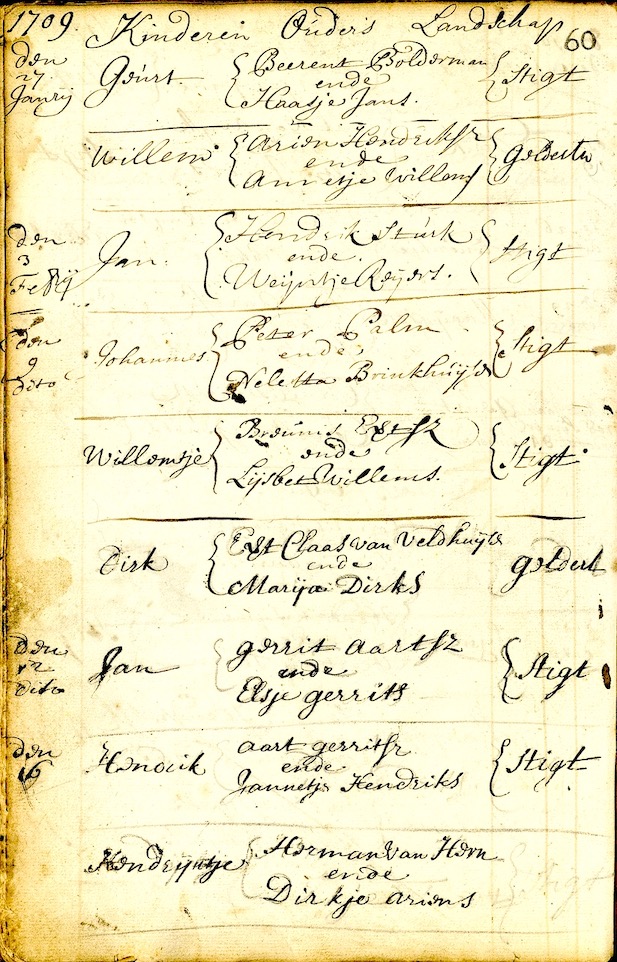 1709. Kinderen Ouders Landschap
60
den 27 Janrij
Geurt.
Beerent Bolderman
ende
Haasje Jans.
Stigt
Willem
Arien Hendriksz
ende
Annetje Willems
Gelderla
den 3 Febrij
Jan.
Hendrik Sturk
ende.
Weijntje Reijers.
Stigt
den 9 dito
Johannes
Peter Palm
ende
Neletta Brinkhuijse
Stigt
Willemtje
Breunis Evertsz
ende
Lijsbet Willems.
Stigt.
Dirk
Evert Claas van Veldhuijse
ende
Marija Dirks
gelderl
den 12 dito
Jan
gerrit aartsz
ende
Elsje gerrits
Stigt
den 16
Hendrik
aart gerritsz
ende
Jannetje Hendriks
Stigt
Hendrijntje
Herman van Hern
ende
Dirkje ariens
Stigt